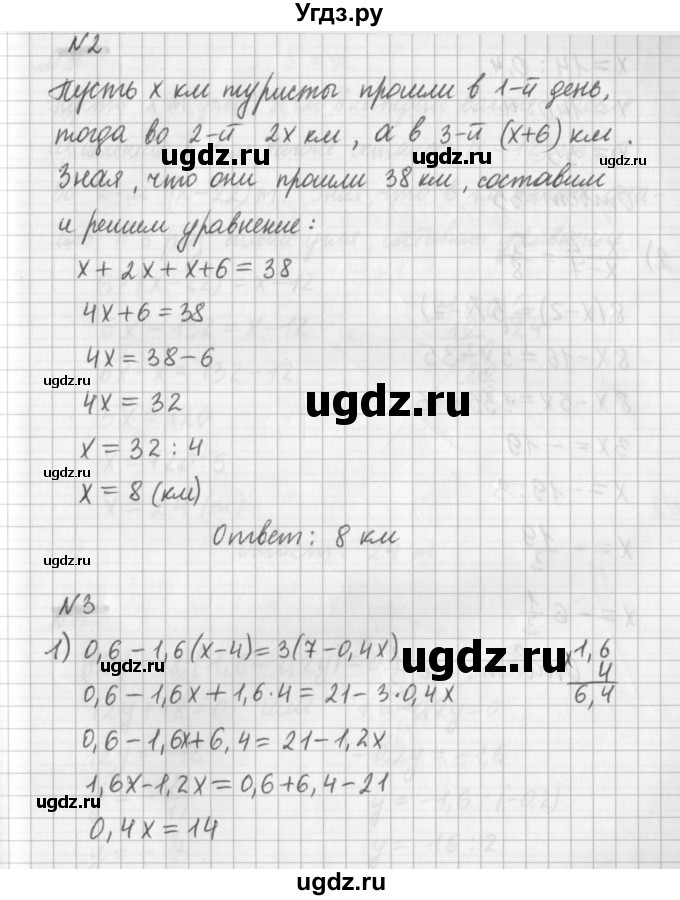 Угдз.ру
N2
Пусть x км туристы прошли в 1-й день,
тогда во 2-й 2x км, а в 3-й (x+6) км.
Зная, что они прошли 38 км, составим
и решим уравнение:
x + 2x + x + 6 = 38
4x + 6 = 38
4x = 38 - 6
4x = 32
x = 32 : 4
x = 8 (км)
Ответ: 8 км
N3
1) 0,6 - 1,6(x-4) = 3(7-0,4x)
0,6 - 1,6x + 1,6·4 = 21 - 3·0,4x
0,6 - 1,6x + 6,4 = 21 - 1,2x
1,6x - 1,2x = 0,6 + 6,4 - 21
0,4x = 14
x 1,6
4
6,4
ugdz.ru
ugdz.ru
ugdz.ru
ugdz.ru
ugdz.ru
ugdz.ru
ugdz.ru
ugdz.ru
ugdz.ru
ugdz.ru
ugdz.ru
ugdz.ru